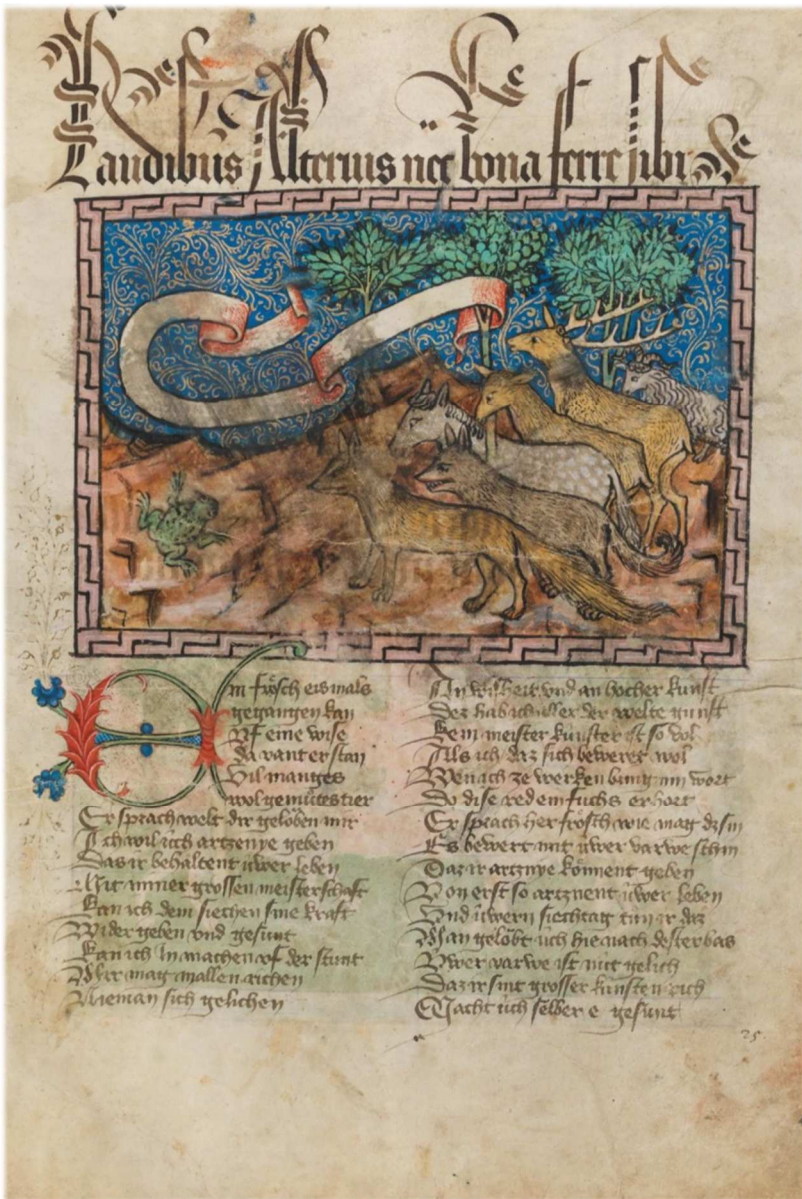 Res De se
Laudibus Alterius nec bona ferre sibi
Ein frösch eins mals
gegangen kam
Vf eine wise
da vant er stan
Vil manges
wol gemůtes tier
Er sprach welt dir gelöben mir
Ich wil üch artzenye geben
Das ir behaltent üwer leben
Mit miner grossen meisterschaft
Kan ich dem siechen sine kraft
Wider geben vnd gesunt
Kan ich In machen vf der stunt
Mir mag in allen richen
Nieman sich gelichen
An wisheit vnd an hocher kunst
Dez hab ich aller der welte gunst
Kein meister kunster ist so vol
Als ich daz sich beweret wol
Wen ich ze werken bring min wort
Do dise red ein fuchs erhort
Er sprach her frosch wie mag dz sin
Es bewert nit üwer varwe schin
Daz ir artznye könnent geben
Von erst so artznent üwer leben
Vnd üwern siechtag tůn ir daz
Man gelöbt üch hie nach dester bas
Vwer varwe ist nit gelich
Daz ir sint grosser kunsten rich
Macht üch selber e gesunt
25